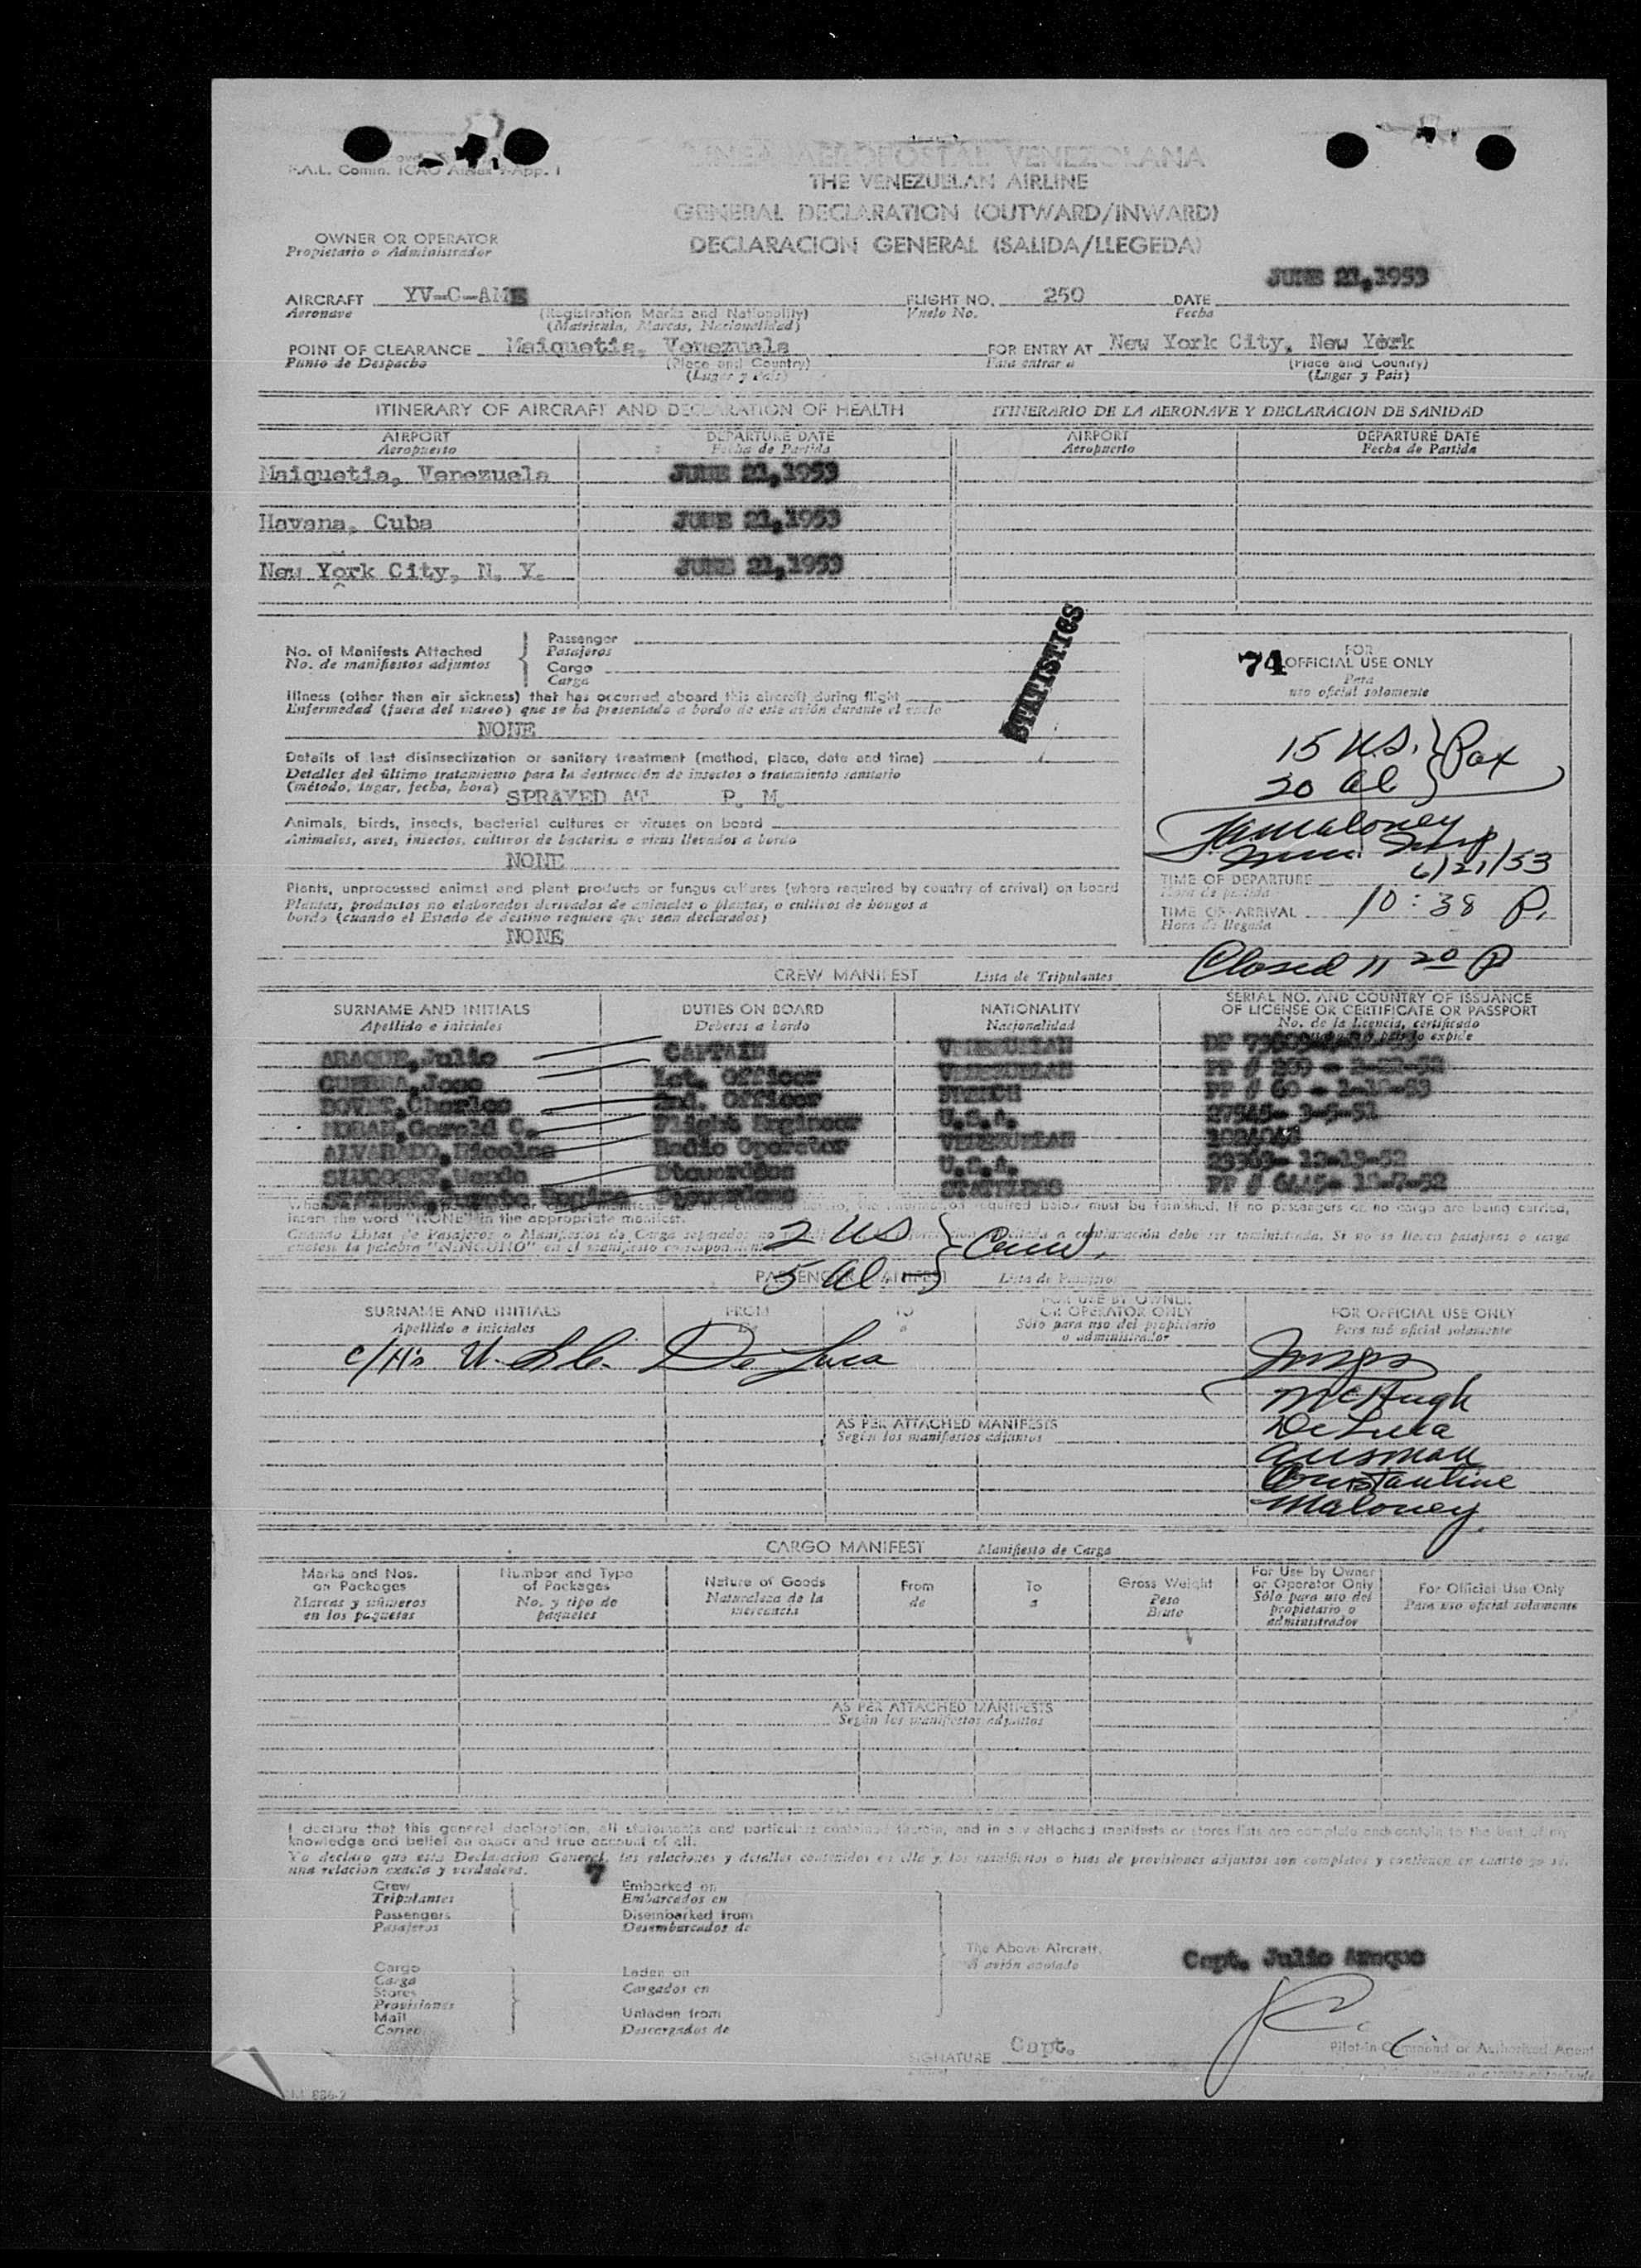 F.A.L. Comm. ICAO Annex 9-App. 1
LINEA AEROPOSTAL VENEZOLANA
THE VENEZUELAN AIRLINE
GENERAL DECLARATION (OUTWARD/INWARD)
DECLARACION GENERAL (SALIDA/LLEGEDA)
OWNER OR OPERATOR
Propietario o Administrador
JUNE 21,1953
AIRCRAFT YV-C-AME FLIGHT NO. 250 DATE
Aeronave (Registration Marks and Nationality) Vuelo No. Fecha
(Matricula, Marcas, Nacionalidad)
POINT OF CLEARANCE Maiquetia, Venezuela FOR ENTRY AT New York City, New York
Punto de Despacho (Place and Country) Para entrar a (Place and Country)
(Lugar y Pais) (Lugar y Pais)
ITINERARY OF AIRCRAFT AND DECLARATION OF HEALTH ITINERARIO DE LA AERONAVE Y DECLARACION DE SANIDAD
AIRPORT DEPARTURE DATE AIRPORT DEPARTURE DATE
Aeropuerto Fecha de Partida Aeropuerto Fecha de Partida
Maiquetia, Venezuela JUNE 21,1953
Havana, Cuba JUNE 21,1953
New York City, N. Y. JUNE 21,1953
STATISTICS
No. of Manifests Attached
No. de manifiestos adjuntos
Passenger
Pasajeros
Cargo
Carga
Illness (other than air sickness) that has occurred aboard this aircraft during flight
Enfermedad (fuera del mareo) que se ha presentado a bordo de este avión durante el vuelo
NONE
Details of last disinsectization or sanitary treatment (method, place, date and time)
Detalles del último tratamiento para la destrucción de insectos o tratamiento sanitario
(método, lugar, fecha, hora) SPRAYED AT P. M.
Animals, birds, insects, bacterial cultures or viruses on board
Animales, aves, insectos, cultivos de bacterias o virus llevados a bordo
NONE
Plants, unprocessed animal and plant products or fungus cultures (where required by country of arrival) on board
Plantas, productos no elaborados derivados de animales o plantas, o cultivos de hongos a
bordo (cuando el Estado de destino requiere que sean declarados)
NONE
74
FOR
OFFICIAL USE ONLY
Para
uso oficial solamente
15 U.S. } Pax
20 Al
Maloney
6/21/53
TIME OF DEPARTURE
Hora de partida
TIME OF ARRIVAL 10:38 P.
Hora de llegada
Closed 11 20 P
CREW MANIFEST Lista de Tripulantes
SURNAME AND INITIALS DUTIES ON BOARD NATIONALITY SERIAL NO. AND COUNTRY OF ISSUANCE
OF LICENSE OR CERTIFICATE OR PASSPORT
Apellido e iniciales Deberes a bordo Nacionalidad No. de la licencia, certificado
ARAQUE,Julio CAPTAIN VENEZUELAN
GUERRA,Jose 1st. Officer VENEZUELAN PP # 200 - 2-22-52
BOYER,Charles 2nd. Officer FRENCH PP # 60 - 1-10-53
Gerald C. Flight Engineer U.S.A. 27545- 3-5-51
ALVARADO,Nicolas Radio Operator VENEZUELAN
U.S.A. 23369- 12-13-52
Stewardess STATELESS PP # 6445- 10-7-52
required below must be furnished. If no passengers or no cargo are being carried,
insert the word "NONE" in the appropriate manifest.
Cuando Listas de Pasajeros o Manifiestos de Carga separados no a continuación debe ser suministrada. Si no se llevan pasajeros o carga
anótese la palabra "NINGUNO" en el manifiesto correspondiente
2 US } Crew.
5 Al
PASSENGER MANIFEST Lista de Pasajeros
SURNAME AND INITIALS FROM TO FOR USE BY OWNER FOR OFFICIAL USE ONLY
Apellido e iniciales De a OR OPERATOR ONLY Para uso oficial solamente
Sólo para uso del propietario
o administrador
De Luca
McHugh
De Luca
Ausman
Constantine
Maloney
AS PER ATTACHED MANIFESTS
Según los manifiestos adjuntos
CARGO MANIFEST Manifiesto de Carga
Marks and Nos. on Packages
Marcas y números en los paquetes
Number and Type of Packages
No. y tipo de paquetes
Nature of Goods
Naturaleza de la mercancia
From
de
To
a
Gross Weight
Peso Bruto
For Use by Owner or Operator Only
Sólo para uso del propietario o administrador
For Official Use Only
Para uso oficial solamente
AS PER ATTACHED MANIFESTS
Según los manifiestos adjuntos
I declare that this general declaration, all statements and particulars contained therein, and in any attached manifests or stores lists are complete and contain to the best of my
knowledge and belief an exact and true account of all.
Yo declaro que esta Declaracion General, las relaciones y detalles contenidos en ella y los manifiestos o listas de provisiones adjuntos son completos y contienen en cuanto yo sé,
una relacion exacta y verdadera.
7
Crew
Tripulantes
Passengers
Pasajeros
Embarked on
Embarcados en
Disembarked from
Desembarcados de
Cargo
Carga
Stores
Provisiones
Mail
Correo
Laden on
Cargados en
Unladen from
Descargados de
The Above Aircraft.
el avión anotado
Capt. Julio Araque
SIGNATURE Capt. Pilot-in-Command or Authorized Agent